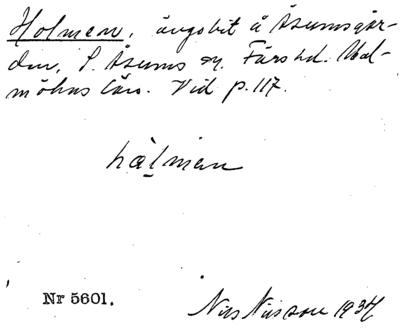 Holmen, ängsbit å Åsumsgår-
den, S. Åsums sn. Färs hd. Mal-
möhus län. Vid p. 117.
hålmen
Nr 5601.
Nils Nilsson 1934